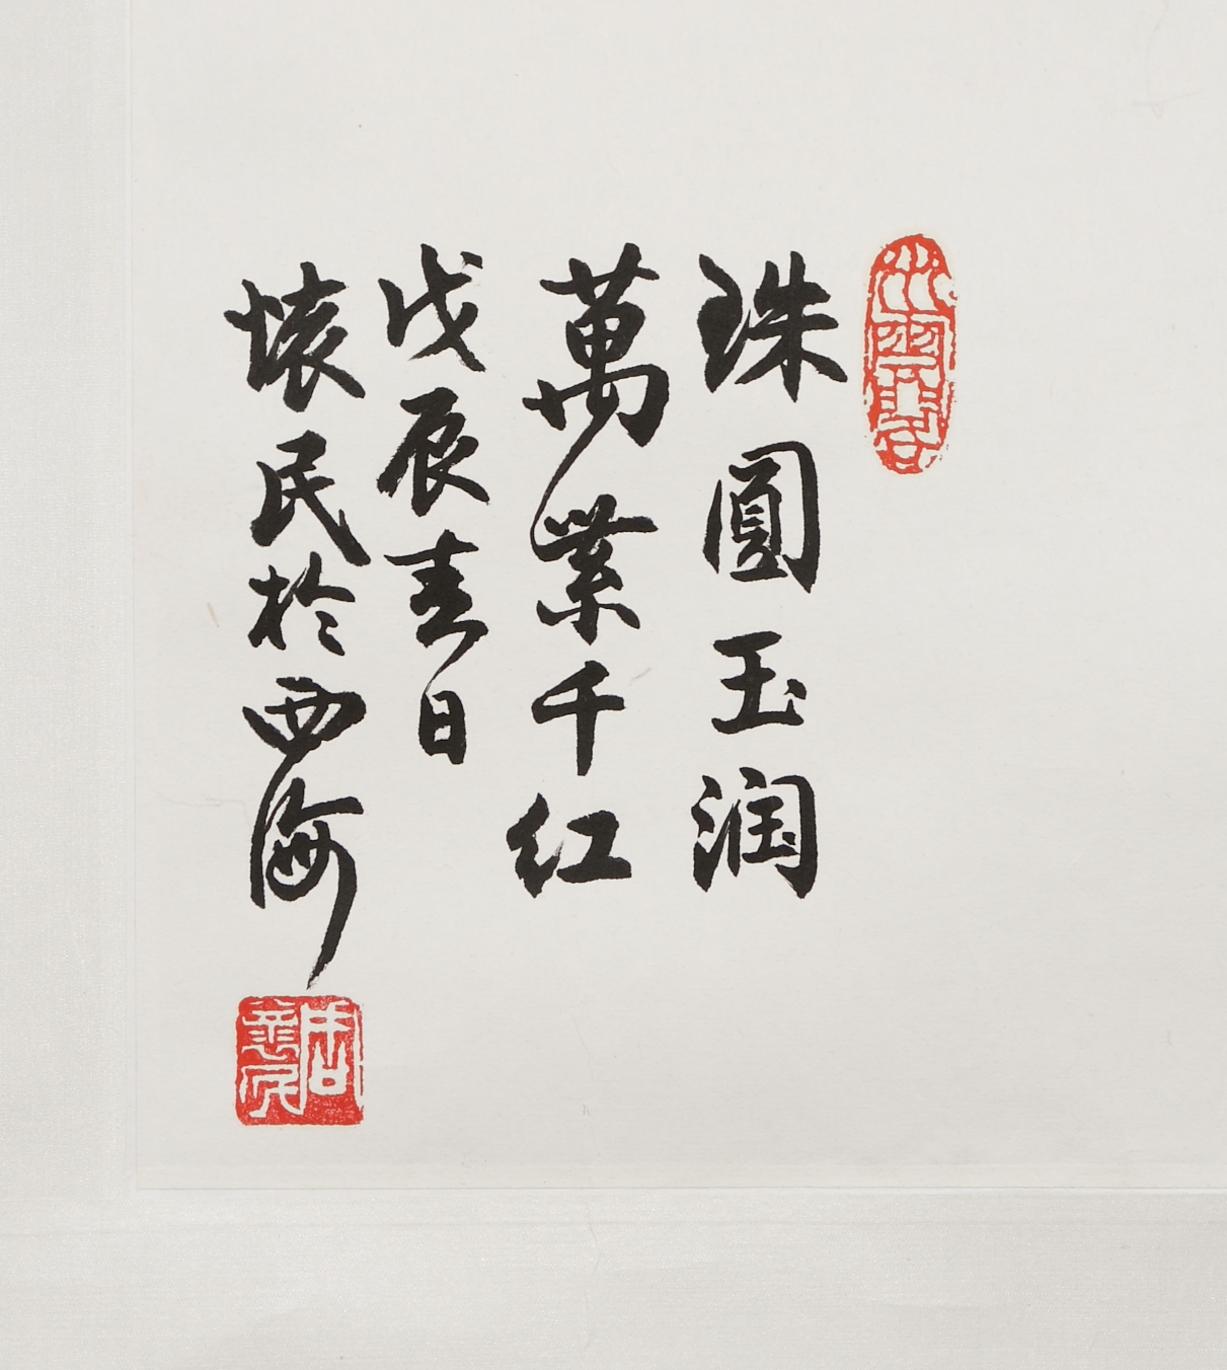 珠圓玉润
萬紫千红
戊辰春日
懷民於西海
周懷民